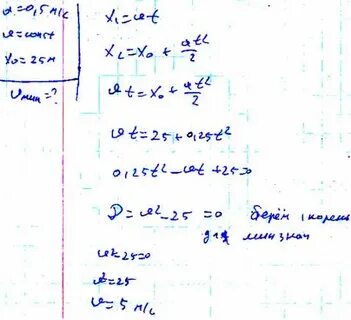 a=0,5 м/с
v=const
x₀=25м
vмин=?
x₁=vt
x₂=x₀ + at²/2
vt=x₀ + at²/2
vt=25+0,25t²
0,25t²-vt+25=0
D=v²-25=0 берём 1 корень
для мин знач
v²-25=0
v²=25
v=5 м/с